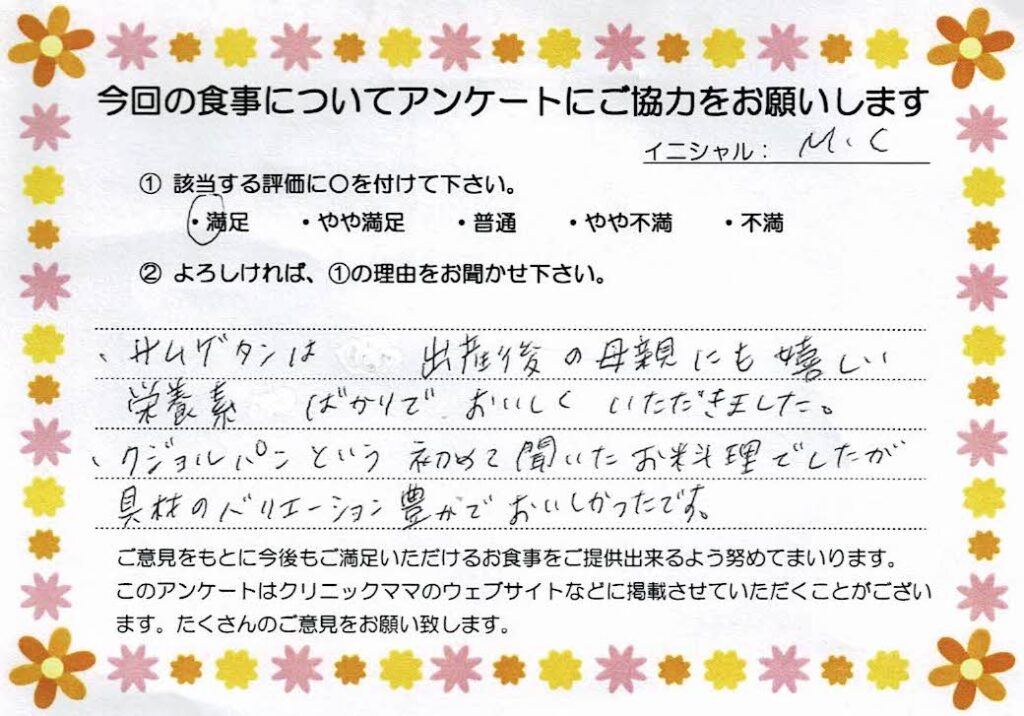 今回の食事についてアンケートにご協力をお願いします
イニシャル： M、C
① 該当する評価に〇を付けて下さい。
・満足 ・やや満足 ・普通 ・やや不満 ・不満
② よろしければ、①の理由をお聞かせ下さい。
、サムゲタンは 出産後の母親にも嬉しい
栄養素 ばかりで おいしく いただきました。
、クジョルパンという 初めて聞いたお料理でしたが
具材のバリエーション豊かでおいしかったです。
ご意見をもとに今後もご満足いただけるお食事をご提供出来るよう努めてまいります。
このアンケートはクリニックママのウェブサイトなどに掲載させていただくことがござい
ます。たくさんのご意見をお願い致します。